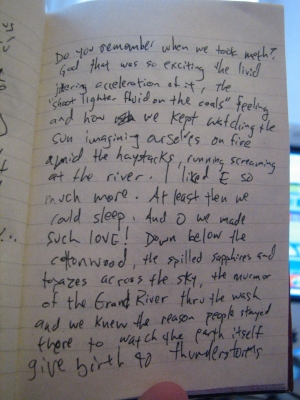 Do you remember when we took meth?
God that was so exciting the livid
jittering acceleration of it, the
"shoot lighter fluid on the coals" feeling
and how we kept watching the
sun imagining ourselves on fire
amid the haystacks, running screaming
at the river. I liked E so
much more. At least then we
could sleep. And O we made
such love! Down below the
cottonwood, the spilled sapphires and
topazes across the sky, the murmor
of the Grand River thru the wash
and we knew the reason people stayed
there to watch the earth itself
give birth to thunderstorms